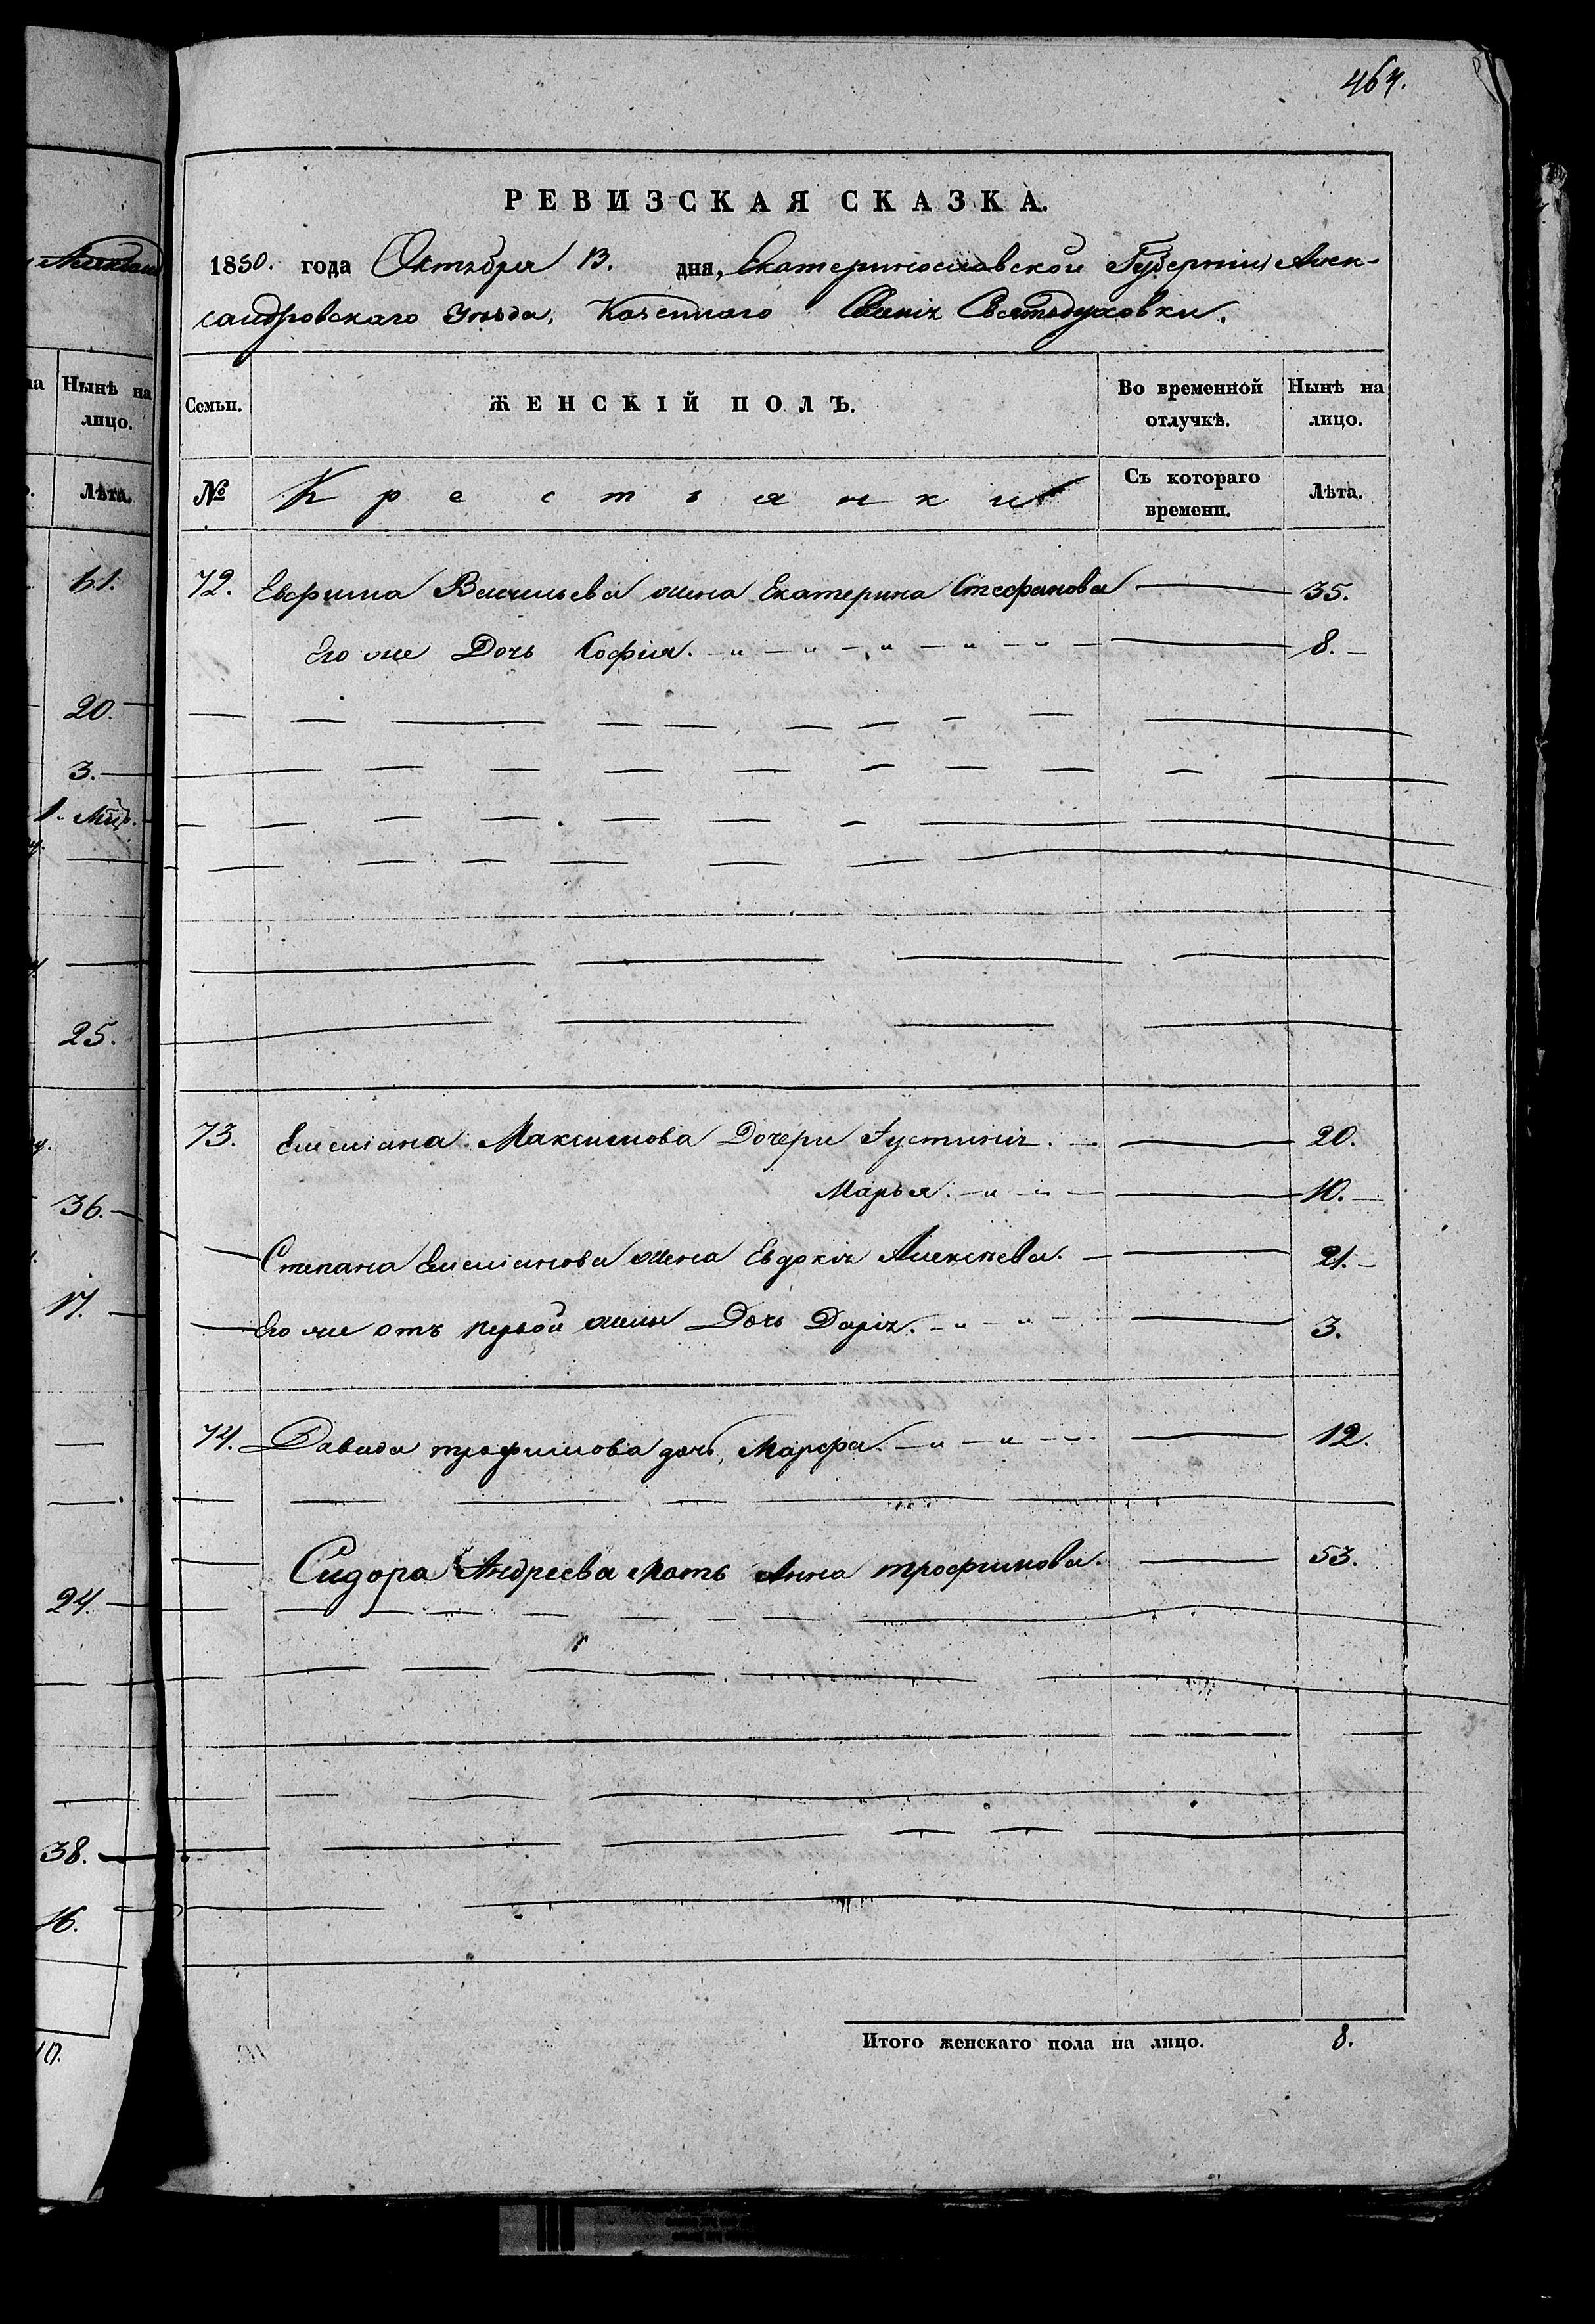 467.
РЕВИЗСКАЯ СКАЗКА.
1850. года Октября 13. дня, Екатеринославской Губерніи Алек-
сандровскаго Уѣзда, Казеннаго Селенія Святодуховки.
Семьи.
ЖЕНСКІЙ ПОЛЪ.
Во временной отлучкѣ.
Нынѣ на лицо.
№
Крестьянки
Съ котораго времени.
Лѣта.
72. Евфима Васильева жена Екатерина Стефанова 35.
Его же Дочь Софія. 8.
73. Емеліана Максимова Дочери Іустинія. 20.
Марья. 10.
Степана Емеліянова жена Евдокія Алексѣева. 21.
Его же отъ первой жены Дочь Дарія. 3.
74. Давида Трофимова дочь, Марфа. 12.
Сидора Андреева Мать Анна Трофимова. 53.
Итого женскаго пола на лицо. 8.
Нынѣ на
лицо.
Лѣта.
61.
20.
3.
1. Мѣс.
25.
36.
17.
24.
38.
16.
10.